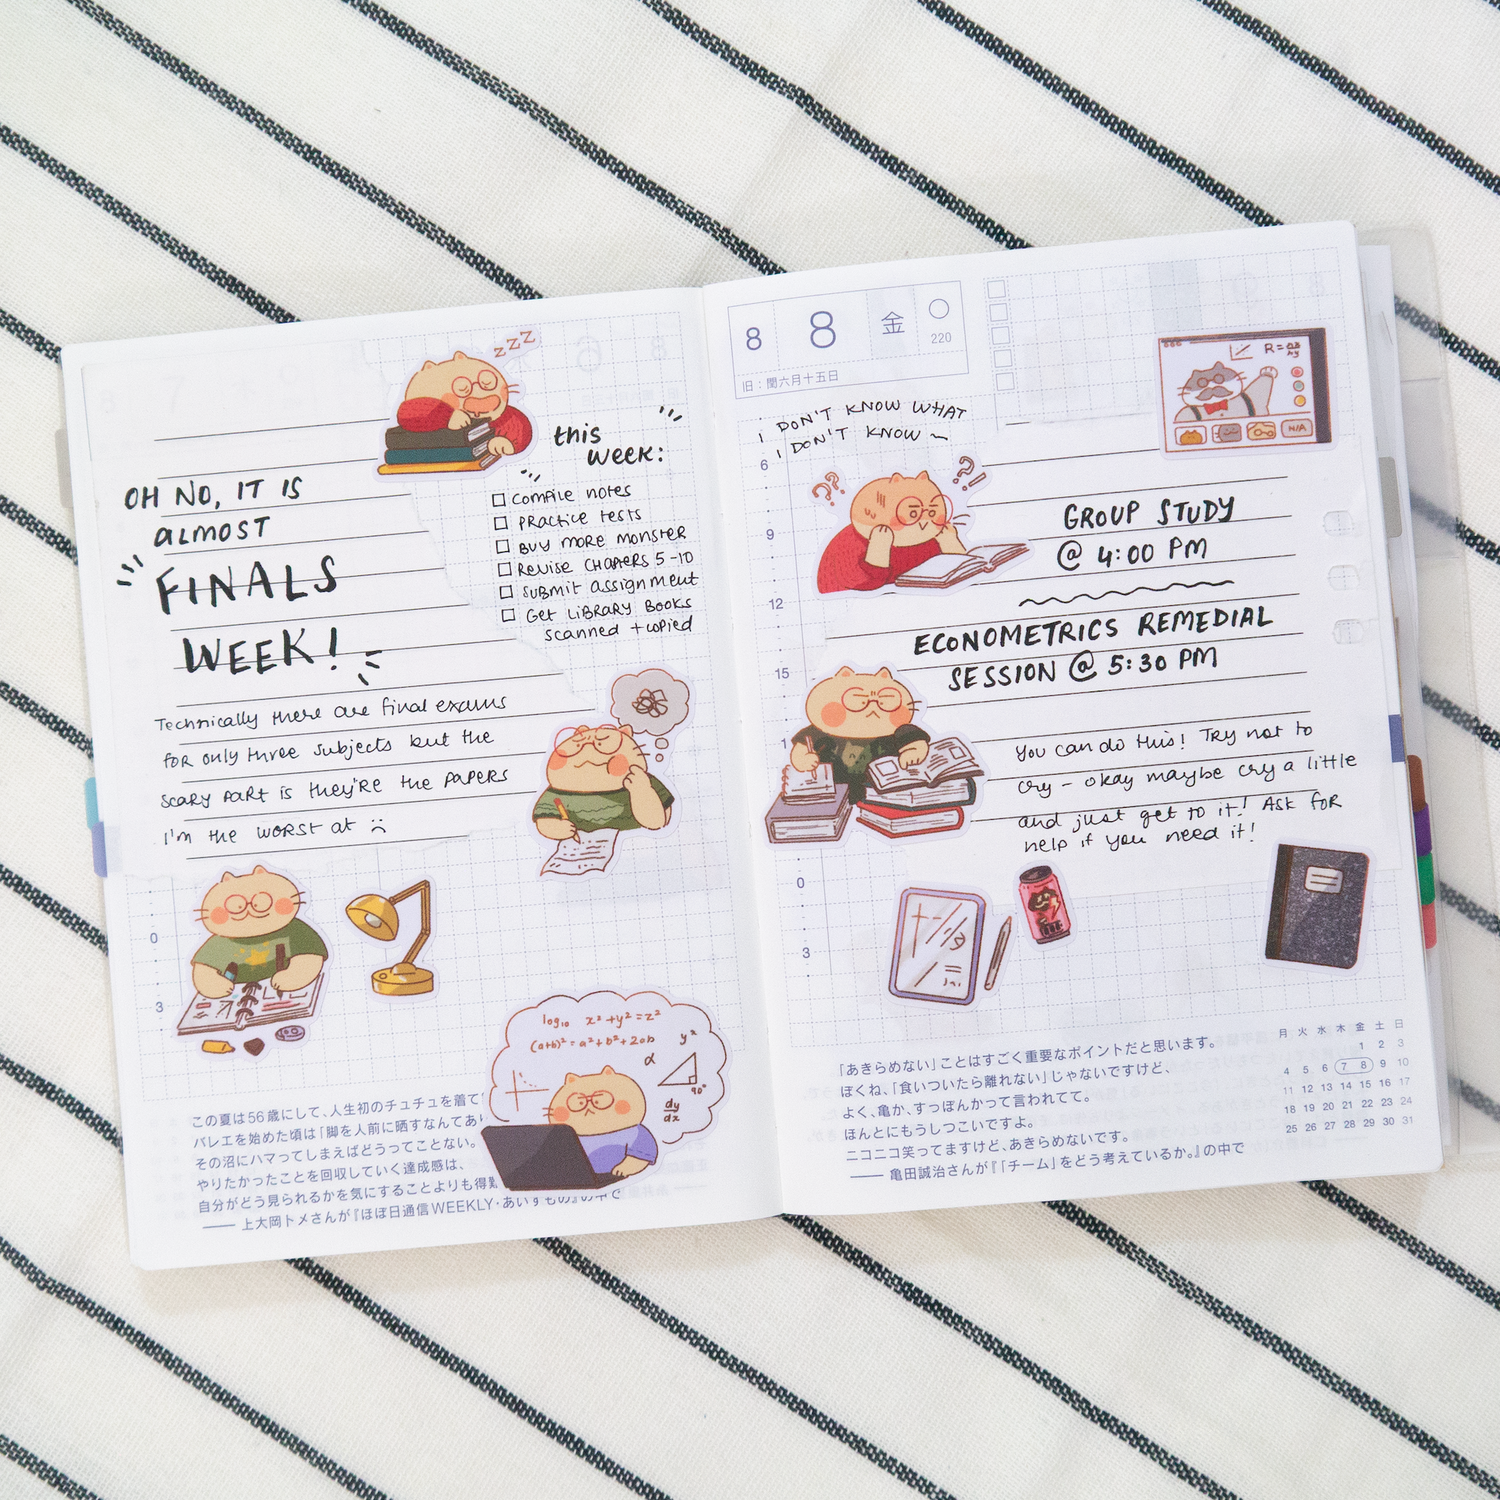 zzz
this
week:
compile notes
practice tests
buy more monster
Revise chapers 5-10
submit assignment
Get Library Books
scanned + copied
OH NO, IT IS
ALMOST
FINALS
WEEK!
Technically there are final exams
for only three subjects but the
scary part is they're the papers
I'm the worst at :(
0
3
log₁₀ x²+y²=z²
(a+b)²=a²+b²+2ab
y²
α
90°
dy
dx
この夏は56歳にして、人生初のチュチュを着て
バレエを始めた頃は「脚を人前に晒すなんてあり
その沼にハマってしまえばどうってことない。
やりたかったことを回収していく達成感は、
自分がどう見られるかを気にすることよりも得難
── 上大岡トメさんが『ほぼ日通信WEEKLY・あいすもの』の中で
8 8 金
220
旧：閏六月十五日
I DON'T KNOW WHAT
I DON'T KNOW ~
R=
N/A
??
?!
6
9
12
15
GROUP STUDY
@ 4:00 PM
ECONOMETRICS REMEDIAL
SESSION @ 5:30 PM
1
you can do this! Try not to
cry - okay maybe cry a little
and just get to it! Ask for
help if you need it!
0
3
「あきらめない」ことはすごく重要なポイントだと思います。
ぼくね、「食いついたら離れない」じゃないですけど、
よく、亀か、すっぽんかって言われてて。
ほんとにもうしつこいですよ。
ニコニコ笑ってますけど、あきらめないです。
── 亀田誠治さんが『「チーム」をどう考えているか。』の中で
月 火 水 木 金 土 日
1 2 3
4 5 6 7 8 9 10
11 12 13 14 15 16 17
18 19 20 21 22 23 24
25 26 27 28 29 30 31